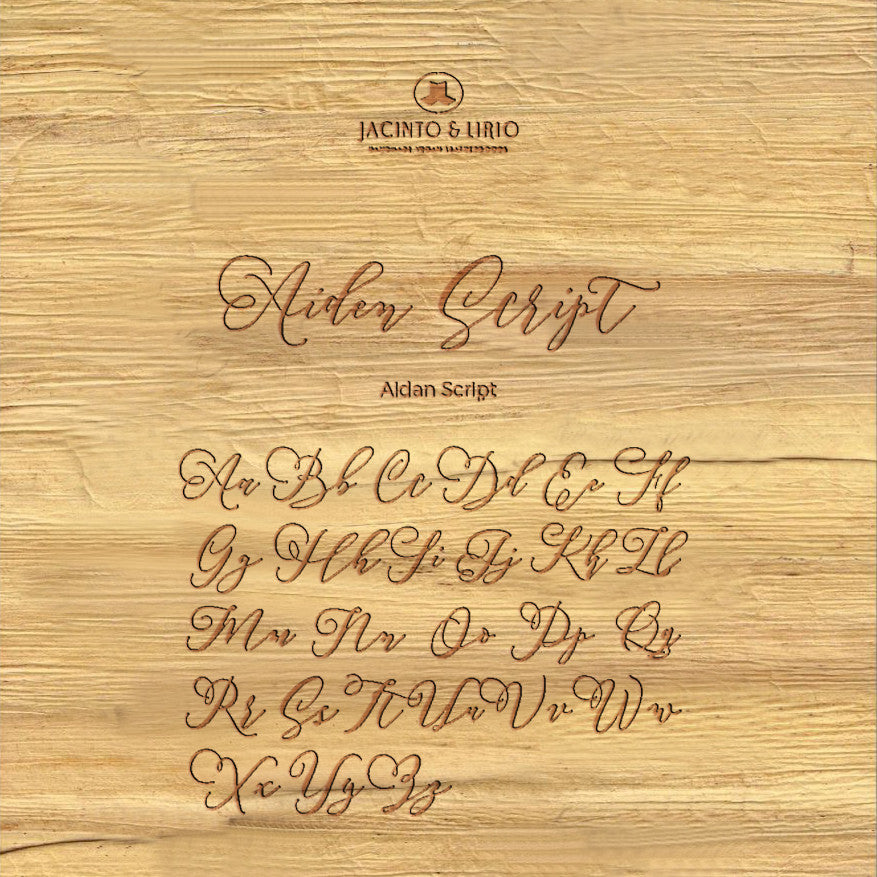 JACINTO & LIRIO
HANDMADE VEGAN LEATHER GOODS
Aiden Script
Aidan Script
Aa Bb Cc Dd Ee Ff
Gg Hh Ii Jj Kk Ll
Mm Nn Oo Pp Qq
Rr Ss Tt Uu Vv Ww
Xx Yy Zz